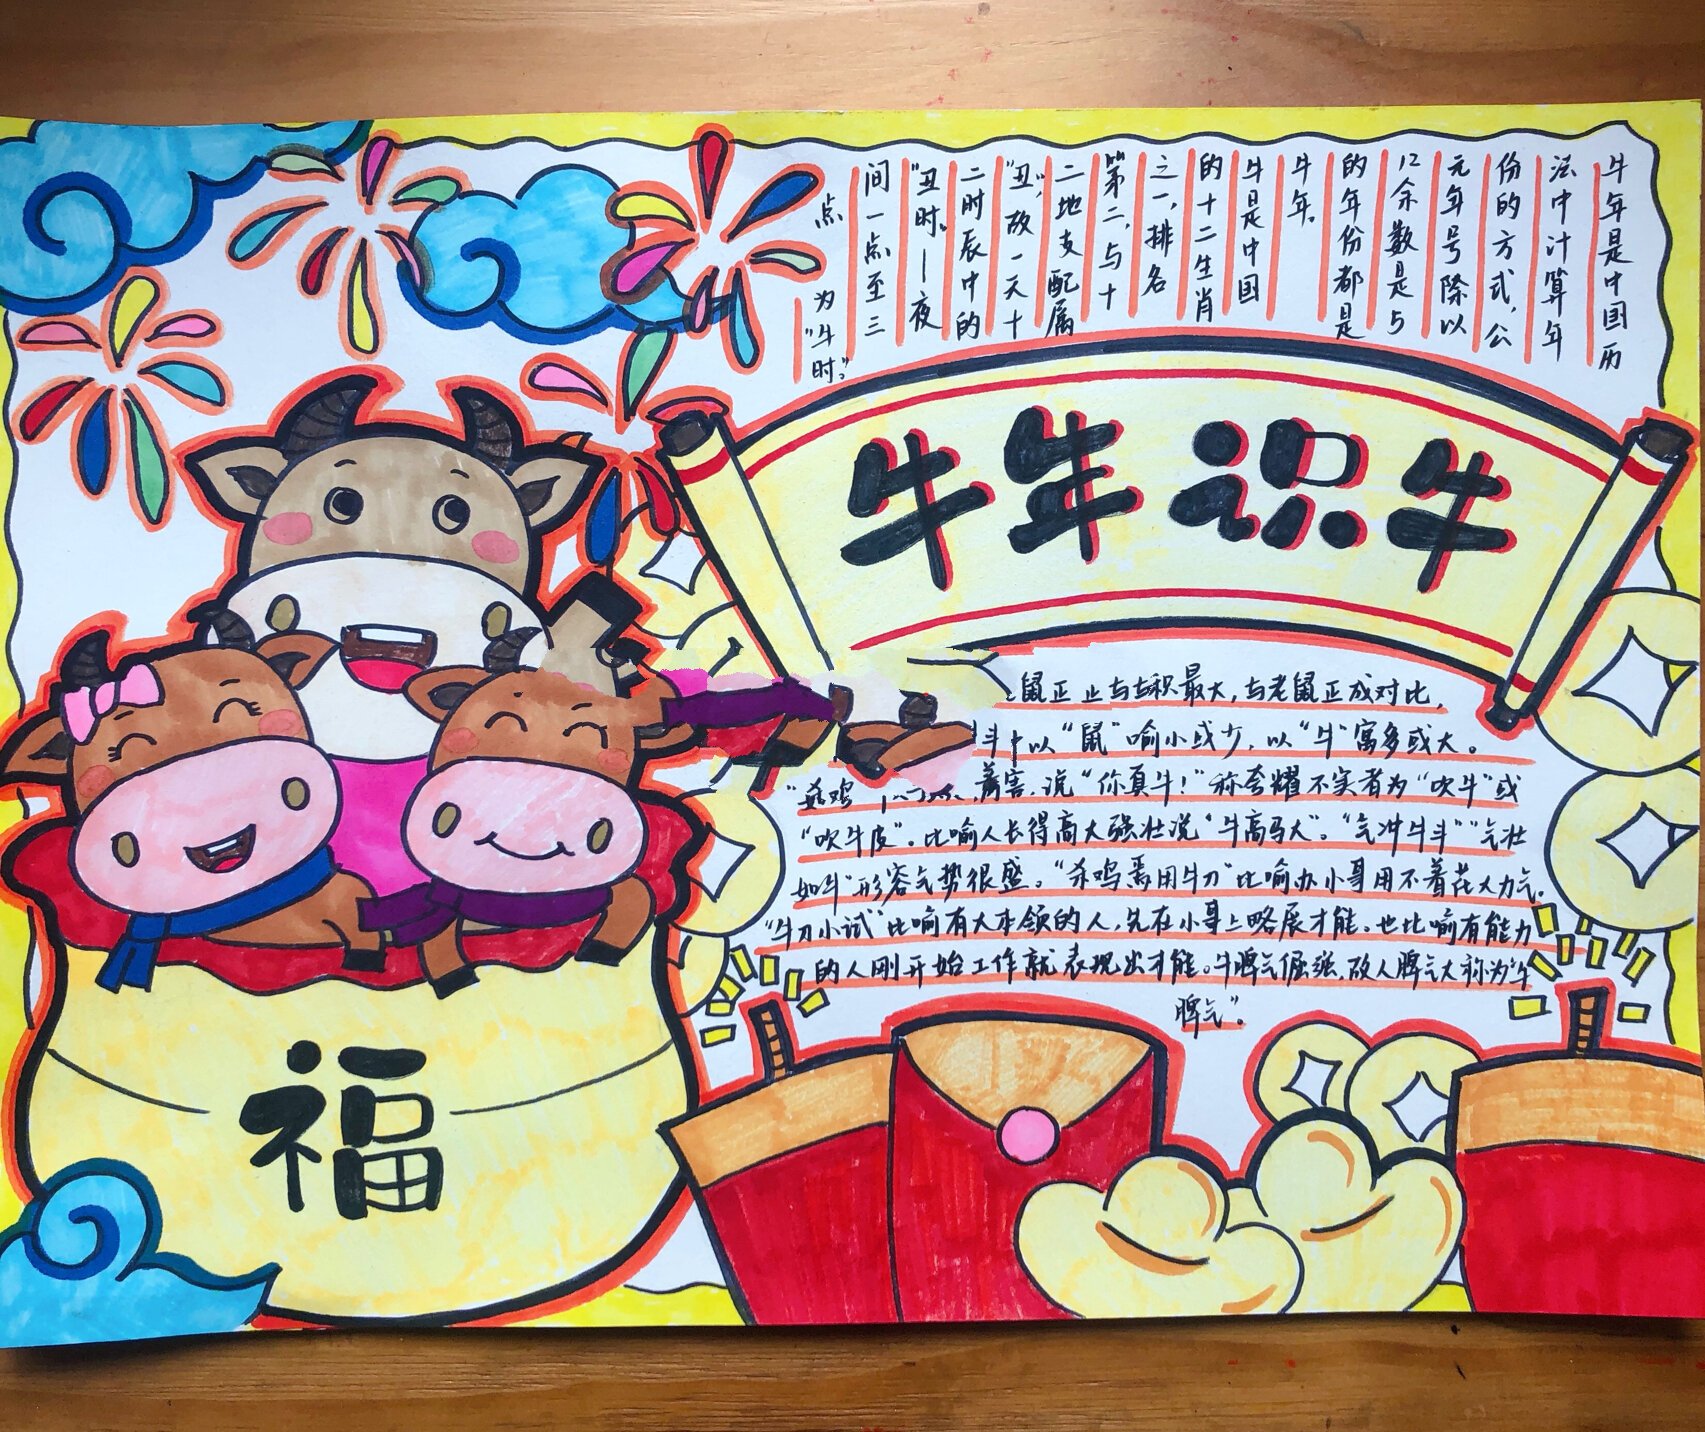 牛年是中国历
法中计算年
份的方式，公
元年号除以
12余数是5
的年份都是
牛年。
牛是中国
的十二生肖
之一，排名
第二，与十
二地支配属
"丑"，故一天十
二时辰中的
"丑时"。一夜
间一点至三
点
为"牛时"。
牛年识牛
鼠正 积最大，与老鼠正成对比，
以"鼠"喻小或少，以"牛"寓多或大。
害，说"你真牛！"称夸耀不实者为"吹牛"或
"吹牛皮"。比喻人长得高大强壮说"牛高马大"。"气冲牛斗""气壮
如牛"形容气势很盛。"杀鸡焉用牛刀"比喻办小事用不着花大力气。
"牛刀小试"比喻有大本领的人，先在小事上略展才能。也比喻有能力
的人刚开始工作就表现出才能。牛脾气倔强，故人脾气大称为"牛
脾气"。
福